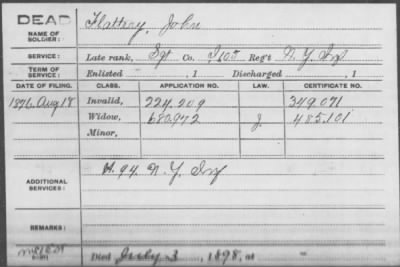 DEAD
NAME OF SOLDIER: Flattery, John
SERVICE: Late rank, Sgt Co. I 105 Reg't N.Y. Inf
TERM OF SERVICE: Enlisted , 1 Discharged , 1
DATE OF FILING. CLASS. APPLICATION NO. LAW. CERTIFICATE NO.
1876, Aug 18 Invalid, 224.209 349.071
Widow, 680.972 J. 485.101
Minor,
ADDITIONAL SERVICES: H. 94. N.Y. Inf
REMARKS:
Died July 3, 1898, at